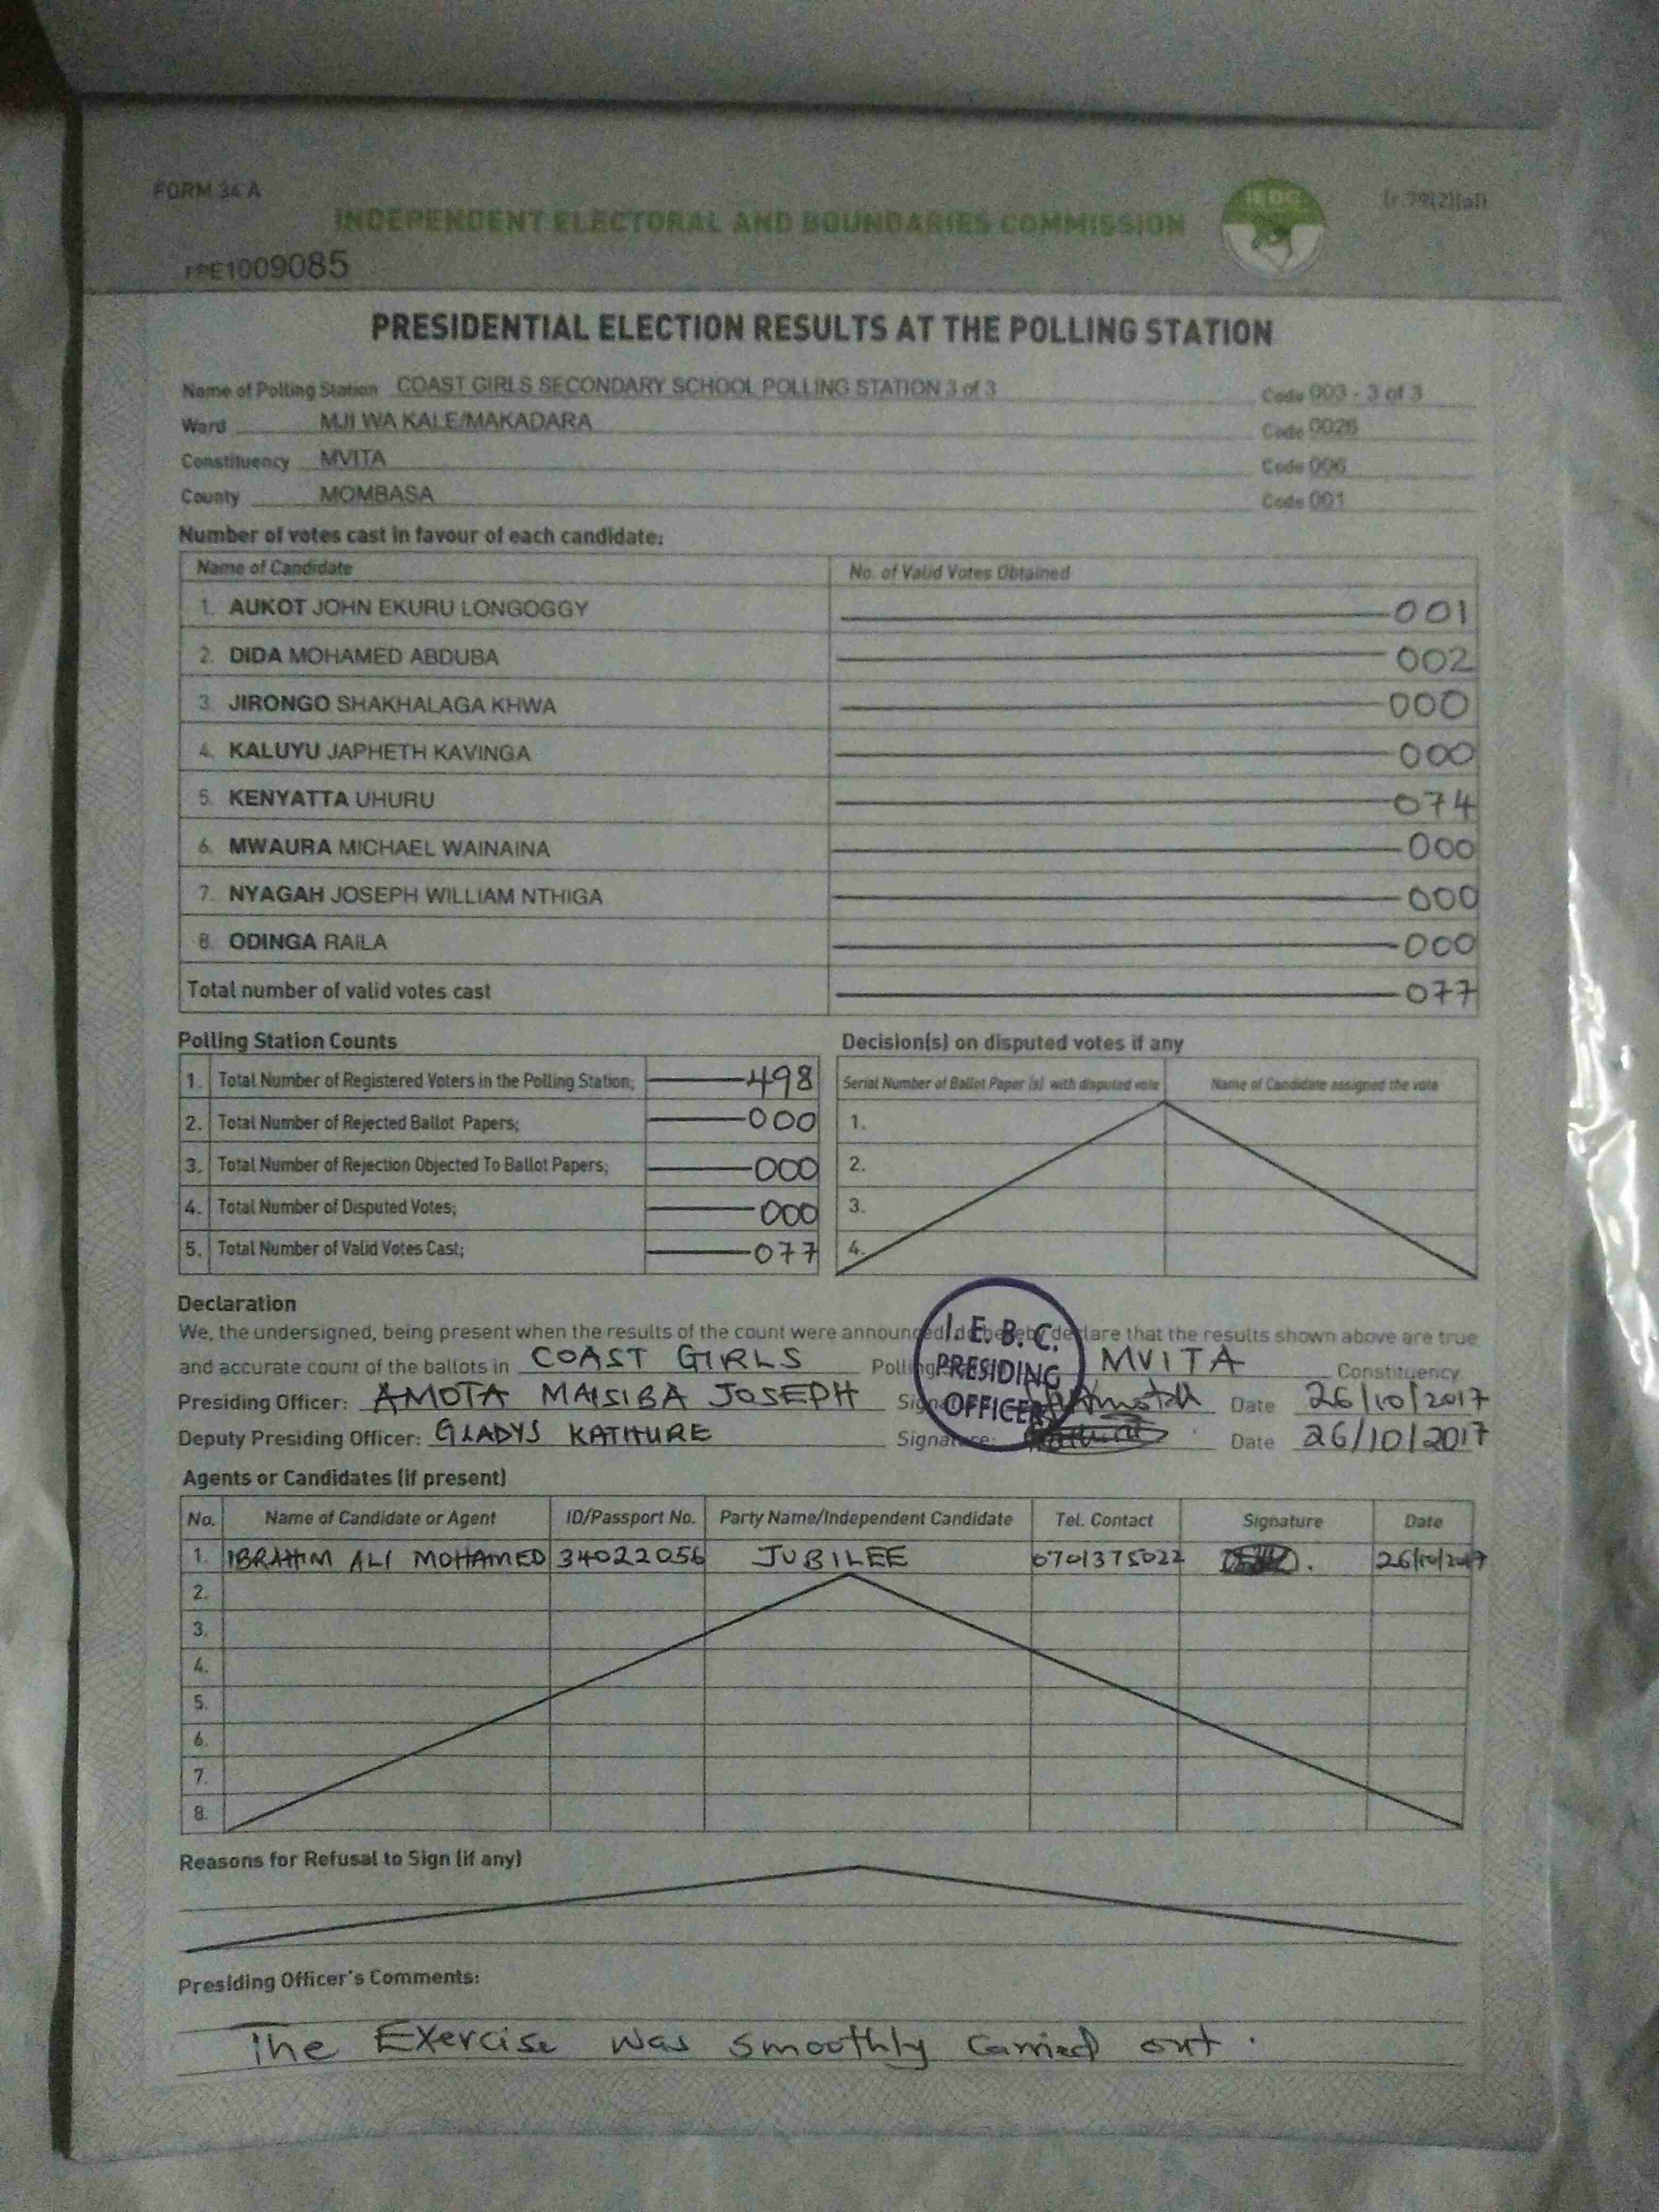 FORM 34 A
(r.79(2)(a))
INDEPENDENT ELECTORAL AND BOUNDARIES COMMISSION
IEBC
FPE1009085
PRESIDENTIAL ELECTION RESULTS AT THE POLLING STATION
Name of Polling Station COAST GIRLS SECONDARY SCHOOL POLLING STATION 3 of 3 Code 003 - 3 of 3
Ward MJI WA KALE/MAKADARA Code 0026
Constituency MVITA Code 006
County MOMBASA Code 001
Number of votes cast in favour of each candidate:
Name of Candidate No. of Valid Votes Obtained
1. AUKOT JOHN EKURU LONGOGGY 001
2. DIDA MOHAMED ABDUBA 002
3. JIRONGO SHAKHALAGA KHWA 000
4. KALUYU JAPHETH KAVINGA 000
5. KENYATTA UHURU 074
6. MWAURA MICHAEL WAINAINA 000
7. NYAGAH JOSEPH WILLIAM NTHIGA 000
8. ODINGA RAILA 000
Total number of valid votes cast 077
Polling Station Counts
1. Total Number of Registered Voters in the Polling Station; 498
2. Total Number of Rejected Ballot Papers; 000
3. Total Number of Rejection Objected To Ballot Papers; 000
4. Total Number of Disputed Votes; 000
5. Total Number of Valid Votes Cast; 077
Decision(s) on disputed votes if any
Serial Number of Ballot Paper (s) with disputed vote Name of Candidate assigned the vote
1.
2.
3.
4.
Declaration
We, the undersigned, being present when the results of the count were announced, do hereby declare that the results shown above are true
and accurate count of the ballots in COAST GIRLS Polling MVITA Constituency
Presiding Officer: AMOTA MAISIBA JOSEPH Signature: Date 26/10/2017
Deputy Presiding Officer: GLADYS KATHURE Signature: Date 26/10/2017
I. E. B. C.
PRESIDING
OFFICER
Agents or Candidates (if present)
No. Name of Candidate or Agent ID/Passport No. Party Name/Independent Candidate Tel. Contact Signature Date
1. IBRAHIM ALI MOHAMED 34022056 JUBILEE 0701375022 26/10/2017
2.
3.
4.
5.
6.
7.
8.
Reasons for Refusal to Sign (if any)
Presiding Officer's Comments:
The Exercise was smoothly carried out.